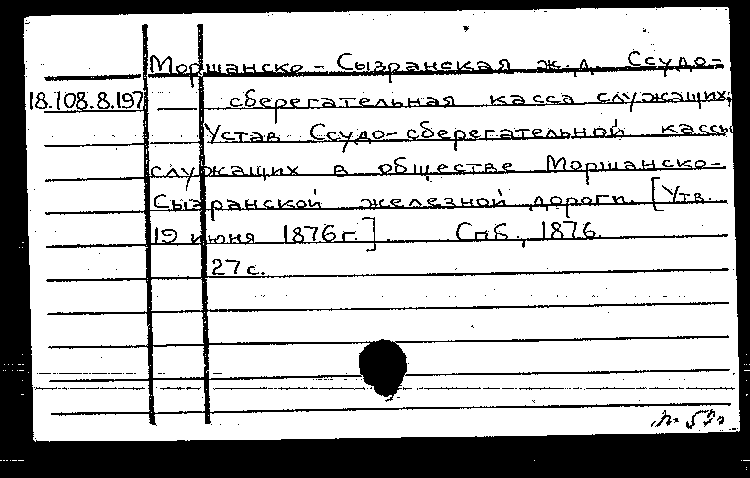 Моршанско-Сызранская ж.д. Ссудо-
18.108.8.197 сберегательная касса служащих.
Устав Ссудо-сберегательной кассы
служащих в обществе Моршанско-
Сызранской железной дороги. [Утв.
19 июня 1876 г.] Спб., 1876.
27 с.